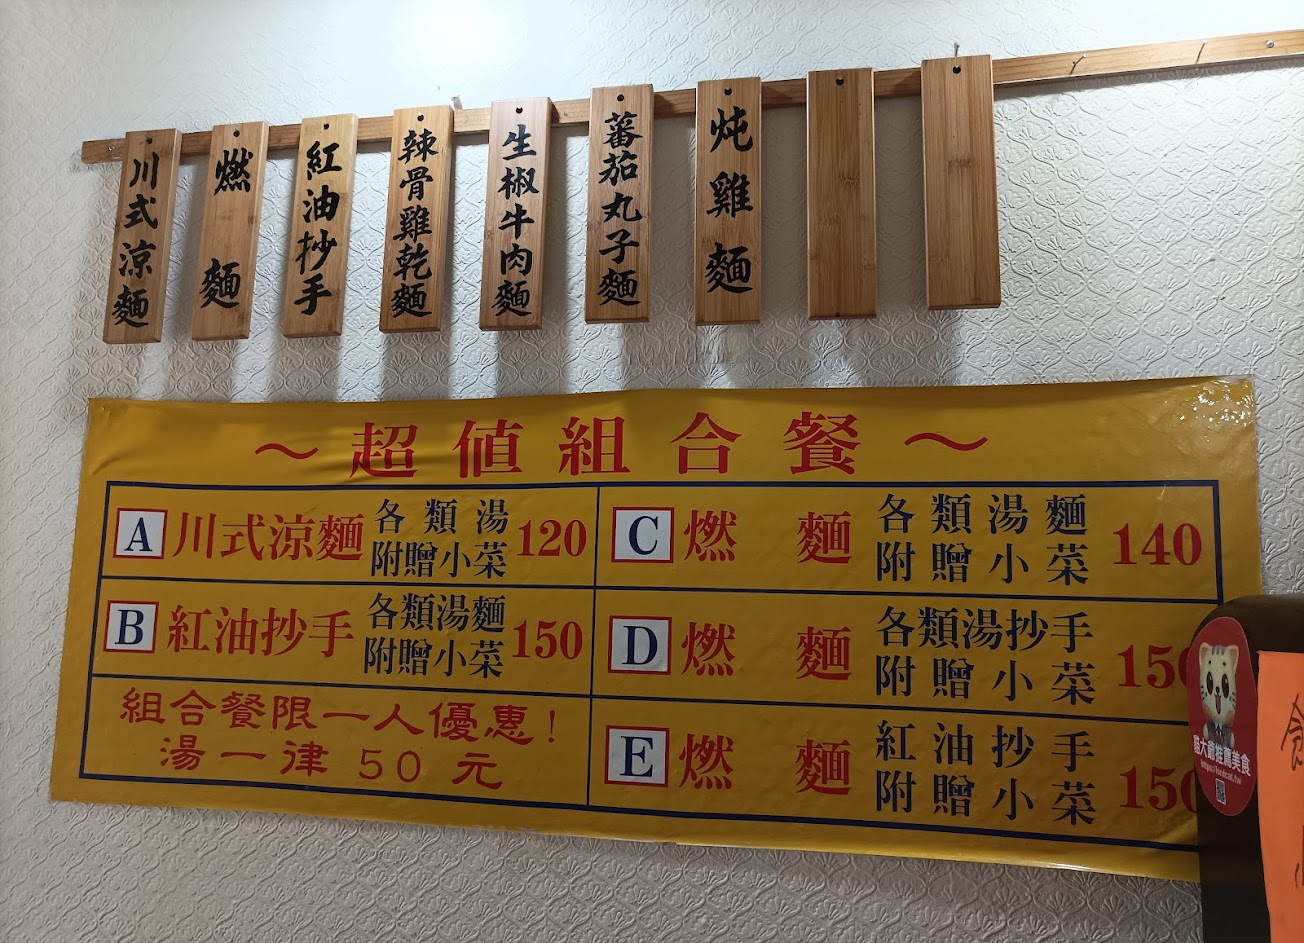 川式涼麵
燃麵
紅油抄手
辣骨雞乾麵
生椒牛肉麵
蕃茄丸子麵
炖雞麵
～超值組合餐～
A 川式涼麵 各類湯 附贈小菜 120
B 紅油抄手 各類湯麵 附贈小菜 150
組合餐限一人優惠!
湯一律 50 元
C 燃麵 各類湯麵 附贈小菜 140
D 燃麵 各類湯抄手 附贈小菜 150
E 燃麵 紅油抄手 附贈小菜 150
貓大爺推薦美食